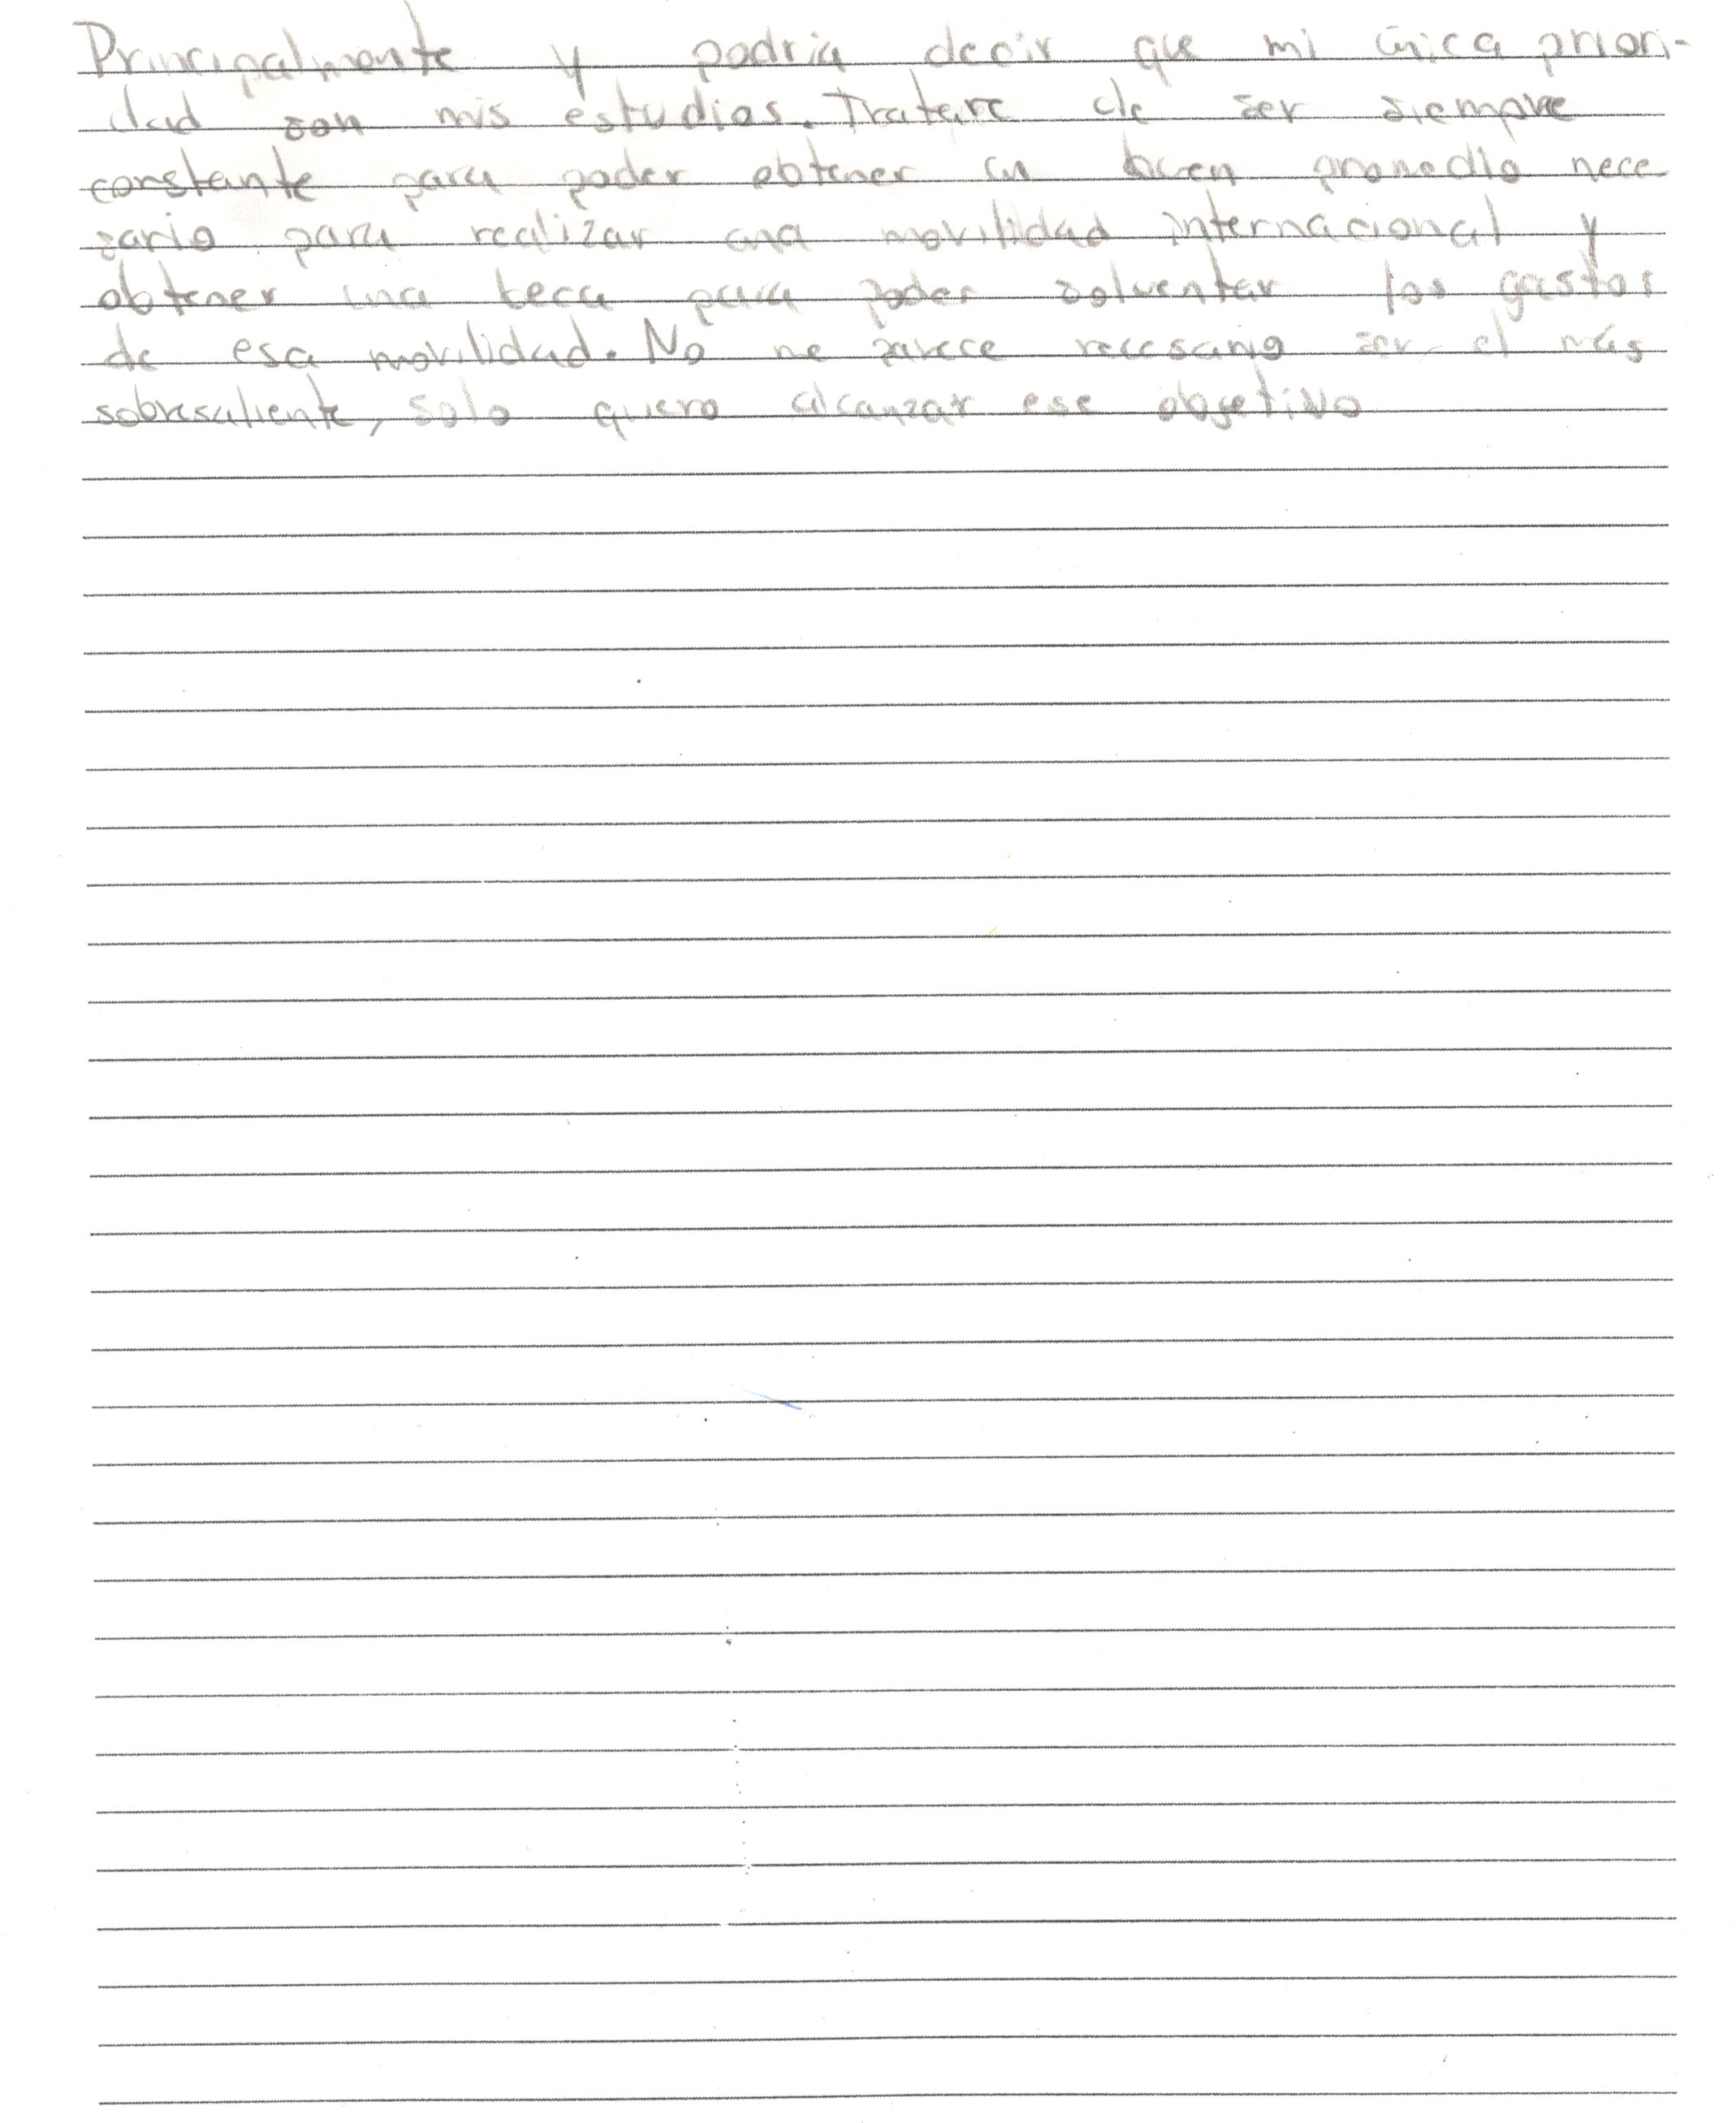 Principalmente y podria decir que mi única priori-
dad son mis estudios. Tratare de ser siempre
constante para poder obtener un buen promedio nece
sario para realizar una movilidad internacional y
obtener una beca para poder solventar los gastos
de esa movilidad. No me parece necesario ser el más
sobresaliente, solo quiero alcanzar ese objetivo